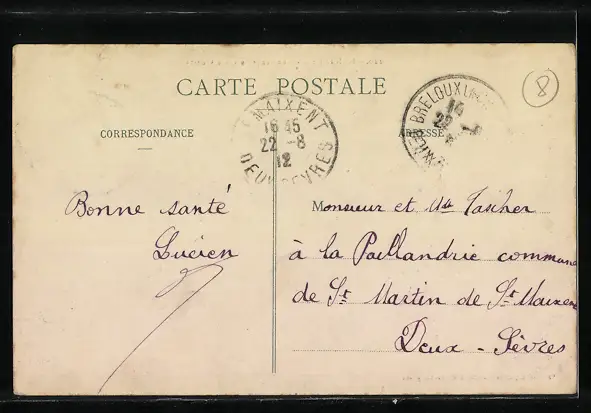 CARTE POSTALE
8
MAIXENT
16 45
22 -8
12
DEUX SEVRES
BRELOUX
CORRESPONDANCE
ADRESSE
Bonne santé
Lucien
Monsieur et Mde Tascher
à la Paillandrie commune
de St Martin de St Maixent
Deux - Sèvres